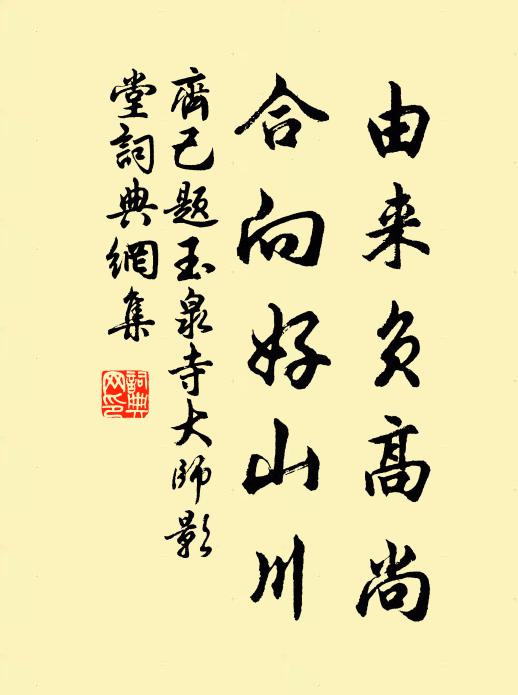 由来负高尚
合向好山川
齊己题玉泉寺大师影
堂詞典網集
詞典网印